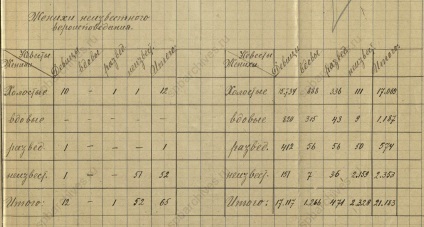 Женихи неизвестного
вероисповедания.
Невесты Женихи Девицы вдовы развед. неизвест. Итого:
Холостые 10 - 1 1 12
вдовые - - - - -
развед. 1 - - - 1
неизвест. 1 - - 51 52
Итого: 12 - 1 52 65
Невесты Женихи Девицы вдовы развед. неизвест. Итого:
Холостые 15.734 888 336 111 17.069
вдовые 820 315 43 9 1.187
развед. 412 56 56 50 574
неизвест. 151 7 36 2.159 2.353
Итого: 17.117 1.266 471 2.329 21.183